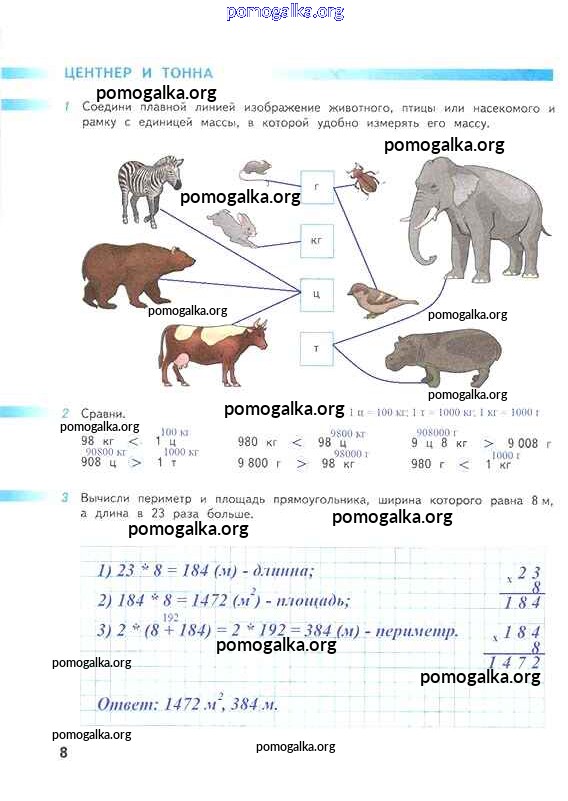 pomogalka.org
ЦЕНТНЕР И ТОННА
pomogalka.org
1 Соедини плавной линией изображение животного, птицы или насекомого и
рамку с единицей массы, в которой удобно измерять его массу.
pomogalka.org
г
pomogalka.org
pomogalka.org
кг
ц
pomogalka.org
pomogalka.org
т
pomogalka.org
2 Сравни.
pomogalka.org
1 ц = 100 кг; 1 т = 1000 кг; 1 кг = 1000 г
pomogalka.org
100 кг 9800 кг 908000 г
98 кг < 1 ц 980 кг < 98 ц 9 ц 8 кг > 9 008 г
90800 кг 1000 кг 98000 г 1000 г
908 ц > 1 т 9 800 г > 98 кг 980 г < 1 кг
3 Вычисли периметр и площадь прямоугольника, ширина которого равна 8 м,
а длина в 23 раза больше.
pomogalka.org
pomogalka.org
1) 23 * 8 = 184 (м) - длинна;
х 2 3
8
2) 184 * 8 = 1472 (м²) - площадь;
1 8 4
192
3) 2 * (8 + 184) = 2 * 192 = 384 (м) - периметр.
х 1 8 4
8
pomogalka.org
1 4 7 2
pomogalka.org
pomogalka.org
Ответ: 1472 м², 384 м.
pomogalka.org
pomogalka.org
8